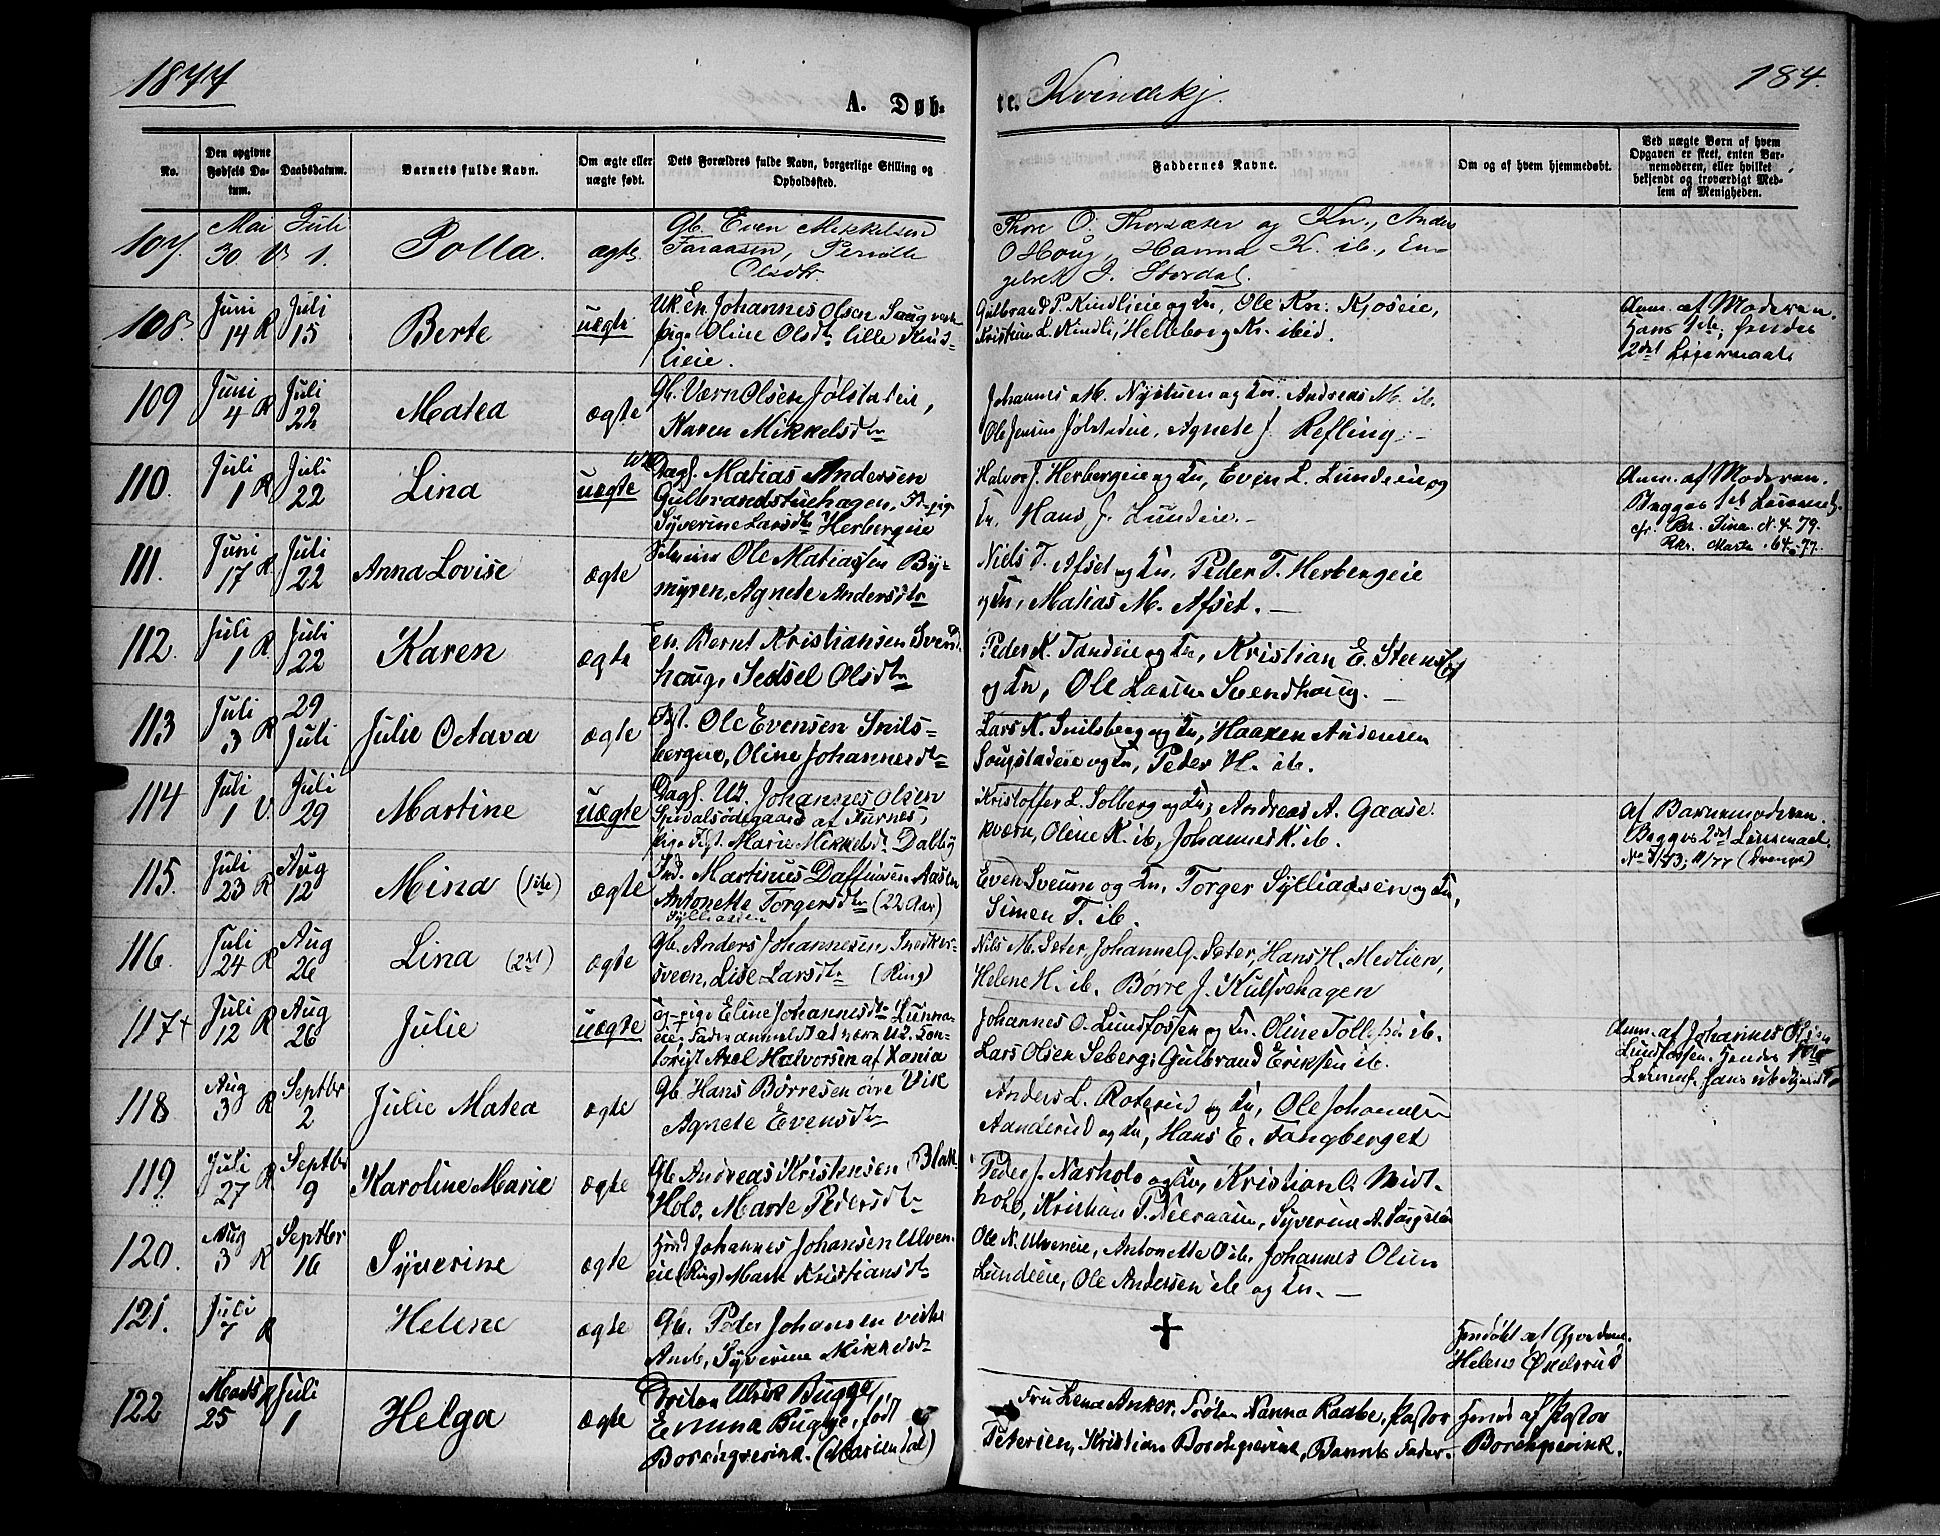 1877
A. Døb-
te. Kvindekj.
184.
No.
Den opgivne Fødsels Datum.
Daabsdatum.
Barnets fulde Navn.
Om ægte eller uægte født.
Dets Forældres fulde Navn, borgerlige Stilling og Opholdssted.
Faddernes Navne.
Om og af hvem hjemmedøbt.
Ved uægte Børn af hvem Opgaven er skeet, enten Barnemoderen, eller hvilket bekjendt og troværdigt Medlem af Menigheden.
107. Mai 30 V. Juli 1. Polla. ægte
Gb. Even Mikkelsen
Faraasen, Pernille
Olsdtr.
Thore O. Thorsæter og Kn., Anders
O Houg, Hanna K. ib., En-
gelret J. Stordal.
108. Juni 14 R Juli 15 Berte uægte
Uk. En. Johannes Olsen
pige Oline Olsdtr lille
lieie.
Gulbrand P. Kindlieie og Kn, Ole Kn. Kjoseie,
Kristian L. Kindli, Helleborg N. ibid.
Anm. af Moderen.
Hans 1ste, Hendes
2det Leiermaal.
109 Juni 4 R Juli 22 Matea ægte
Gb. Værn Olsen Jølstadeie,
Karen Mikkelsdtr
Johannes M. Nystuen og Kn. Andreas M. ib.
Ole Jensen Jølstadeie, Agnete J. Refling. –
110. Juli 1 R Juli 22 Lina uægte
Uk.
Dagl. Matias Andersen
Gulbrandstuehagen, pige
Syverine Larsdtr Herbergeie
Halvor J. Herbergeie og Kn, Even L. Lundeie og
Kn. Hans J. Lundeie. –
Anm. af Moderen.
Begges 1ste Leiermaal.
cfr. Lina. N. 4. 79.
Marte. 64. 77.
111. Juni 17 R Juli 22 Anna Lovise ægte
Ole Matiassen By-
myren, Agnete Andersdtr
Niels T. Afset og Kn, Peder T. Herbergeie
og Kn, Matias M. Afset. –
112. Juli 1 R. Juli 22 Karen ægte
En. Bernt Kristiansen Svend-
haug, Sedsel Olsdtr
Peder K. Tandeie og Kn, Kristian E. Steensli
og Kn, Ole Larsen Svendhaug. –
113 Juli 3 R 29 Juli Julie Octava ægte
Fgt. Ole Evensen Snils-
bergeie, Oline Johannesdtr
Lars N. Snilsberg og Kn, Haaken Andersen
Sougstadeie og Kn, Peder H. ib.
114 Juli 1 V. Juli 29 Martine uægte
Dagl. Uk. Johannes Olsen
Spidalsødegaard af Furnes,
pige Fgt. Marie Mikkelsdtr Dalby
Kristoffer L. Solberg og Kn, Andreas A. Gaase-
kværn, Oline K. ib, Johannes K. ib.
af Barnemoderen.
Begges 2det Leiermaal.
No 7/73; 11/77 (Drenge)
115. Juli 23 R Aug 12 Mina (1ste) ægte
Ind. Martinus Daffinsen Aasen
Antonette Torgersdtr (22 Aar)
Sylliaasen
Even Sveum og Kn, Torger Sylliaasen og Kn,
Simen T. ib.
116. Juli 24 R Aug 26 Lina (2det) ægte
Gb. Anders Johannesen Snedker-
sveen, Lise Larsdtr (Ring)
Nils M. Seter, Johanne G. Seter, Hans H. Medlien,
Helene H. ib. Børre J. Kulsvehagen
117+ Juli 12 R Aug 26 Julie uægte
pige Eline Johannesdtr Lunna-
eie, Fader anmeldt at være Uk. Kon-
torist Axel Halvorsen af Xania
Johannes O. Lundfossen og Kn. Oline Toll ib.
Lars Olsen Seberg, Gulbrand Eriksen ib.
Anm. af Johannes Olsen
Lundfossen. Hendes 1ste
Leierm. hans
118 Aug 3 R Septbr 2 Julie Matea ægte
Gb. Hans Børresen øvre Vik
Agnete Evensdtr
Anders L. Roterud og Kn, Ole Johansen
Aanderud og Kn, Hans E. Fangberget
119. Juli 27 R Septbr 9 Karoline Marie ægte
Gb Andreas Kristensen Blak-
Hols. Marte Pedersdtr
Peder J. Narhols og Kn, Kristian O. Midt-
hols, Kristian P. Neeraasen, Syverine A. Sougstad
120. Aug 3 R Septbr 16 Syverine ægte
Hmd Johannes Johansen Ulven-
eie (Ring) Marte Kristiansdtr
Ole N. Ulveneie, Antonette O ib. Johannes Olsen
Lundeie, Ole Andersen ib og Kn. –
121. Juli 7 R Helene ægte
Gb. Peder Johansen vestre
Aneb, Syverine Mikkelsdtr
+
Hmdøbt af Gjordem.
Helene Økelsrud
122 Marts 25 R Juli 1 Helga ægte
Doktor Ulrik Bugge,
Emma Bugge, født
Borchgrevink. (Mariendal)
Fru Lena Anker, Frøken Nanna Raabe, Pastor
Petersen, Kristian Borchgrevink, Barnets Fader.
Hmd af Pastor
Borchgrevink.